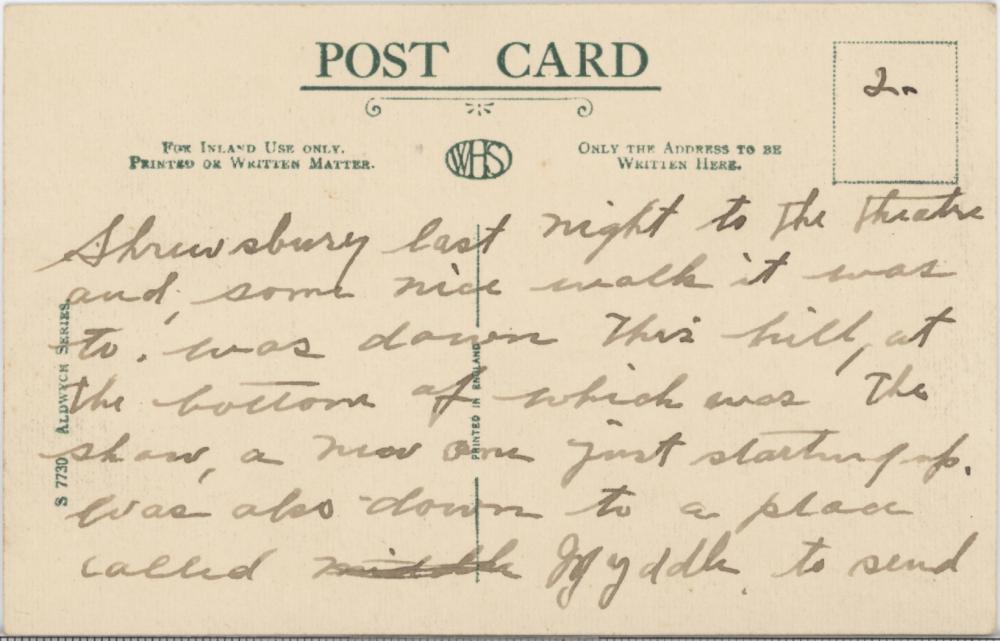 POST CARD
2.
FOR INLAND USE ONLY.
PRINTED OR WRITTEN MATTER.
WHS
ONLY THE ADDRESS TO BE
WRITTEN HERE.
Shrewsbury last night to the theatre
and, some nice walk it was
to. was down this hill, at
the bottom of which was the
show, a new one just starting up.
Was also down to a place
called middle to send
S 7730 ALDWYCH SERIES.
PRINTED IN ENGLAND